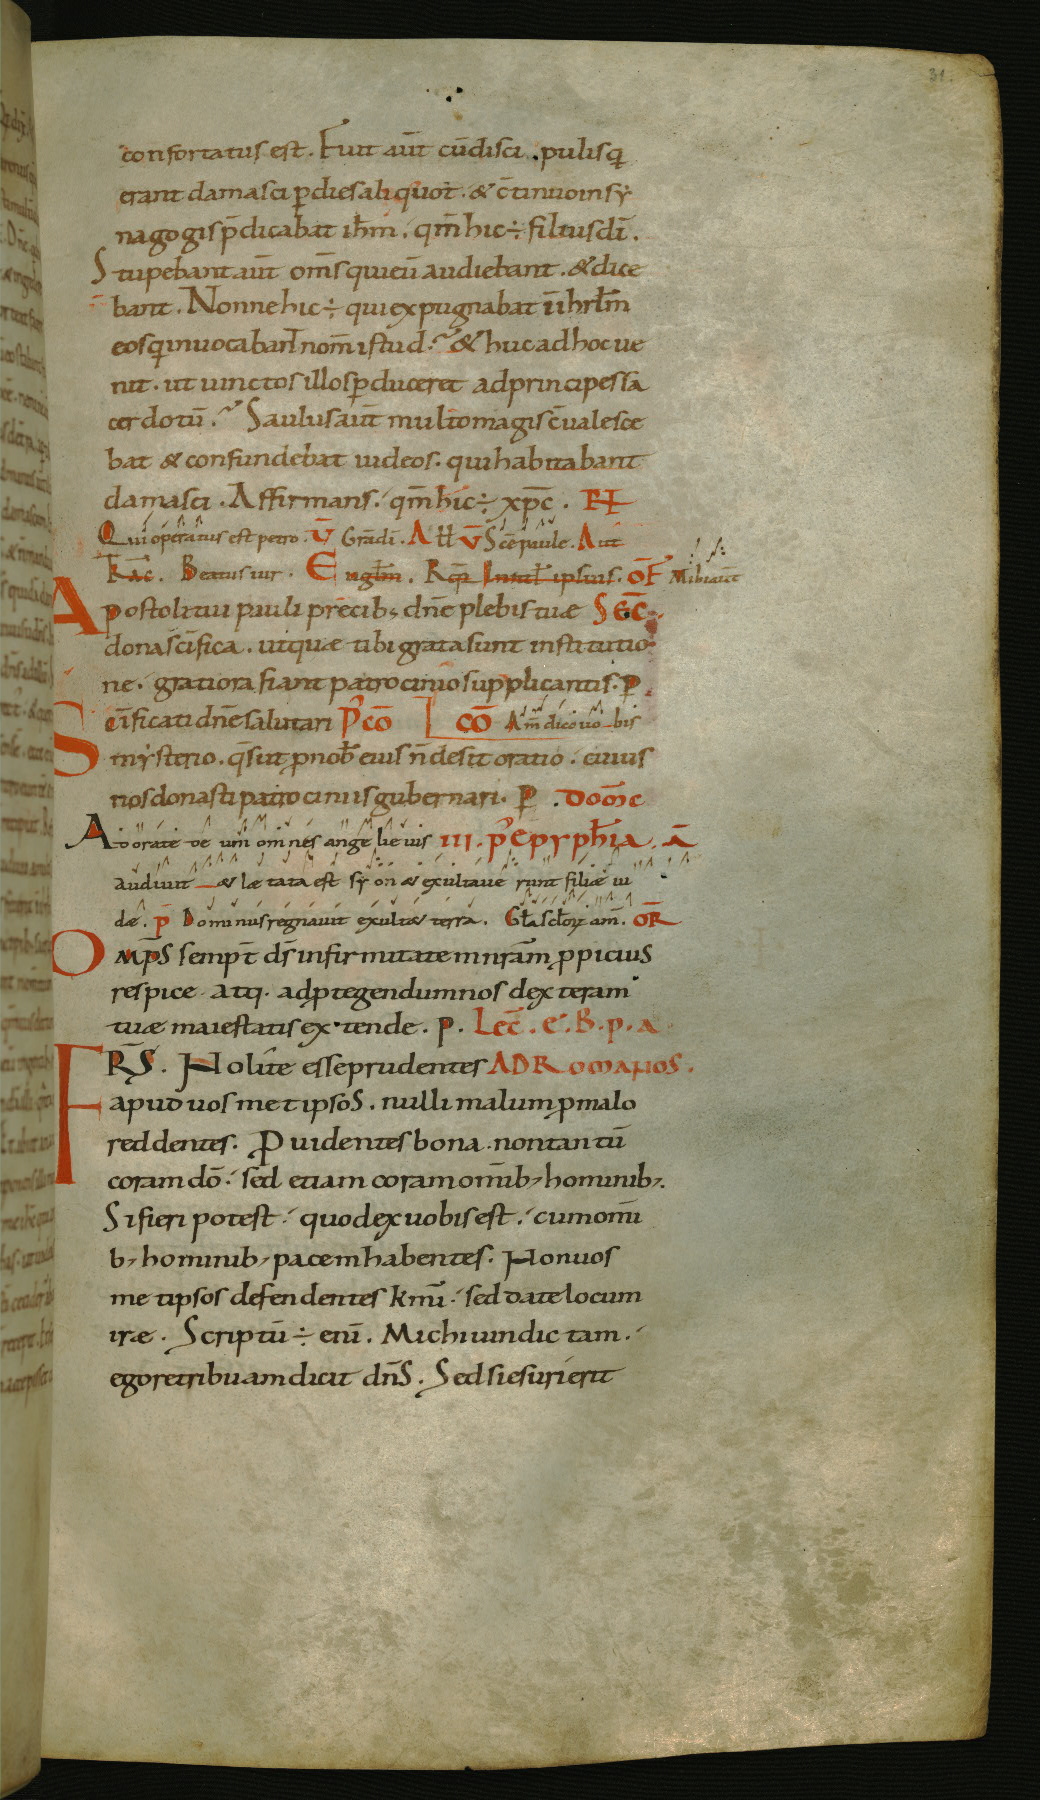 31.
confortatus est. Fuit aūt cū disci pulis q̄
erant damasci p̱ dies aliquot. & c̄tinuo in sy
nagogis p̄dicabat ihm̄. qm̄ hic ÷ filius dī.
Stupebant aūt om̄s qui eū audiebant. & dice
bant. Nonne hic ÷ qui expugnabat ī hrl̄m
eos q̄ inuocabant nom̄ istud? & huc ad hoc ue
nit. ut uinctos illos p̱duceret ad principes sa
cerdotū? Saulus aūt multo magis c̄ualesce
bat & confundebat iudeos. qui habitabant
damasci. Affirmans. qm̄ hic ÷ xp̄c.
Qui operatus est petro. V̄ Gra dī. All V̄ Sc̄e paule. A
Beatus uir. Eugl̄m. Of Mihi aūt
Apostoli tui pauli precib; dn̄e plebis tuae SEC̄
dona sc̄ifica. ut quae tibi grata sunt institutio
ne. gratiora fiant patrocinio supplicantis. p̱
Sc̄ificati dn̄e salutari P̄ CŌ CŌ Am̄ dico uo bis
mysterio. q̄s ut p̱ nob̄ eius n̄ desit oratio. cuius
nos donasti patrocinius gubernari. p̱. DOM̄C
Adorate deum omnes angeli eius III. P̄ EPYPHĪA. Ā
audiuit & laetata est syon & exultauerunt filiae iu
dae. p̄ Dominus regnauit exultet terra. Gl̄a scl̄orȝ am̄. OR̄
Omp̄S semp̱t̄ dS̄ infirmitatem nr̄am p̱picius
respice. atq. ad p̱tegendum nos dexteram
tuae maiestatis extende. p̱. LEC̄. E. B. P. A
FRS̄. Nolite esse prudentes AD ROMANOS.
apud uosmet ipsoS. nulli malum p̱ malo
reddentes. Puidentes bona. non tantū
coram dō. sed etiam coram omīb; hominib;.
Si fieri potest. quod ex uobis est. cum omī
b; hominib; pacem habentes. Non uos
met ipsos defendentes kmī. sed date locum
irae. Scriptū ÷ enī. Michi uindictam.
ego retribuam dicit dn̄S. Sed si esurierit